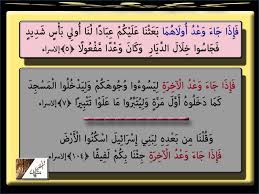 فَإِذَا جَاءَ وَعْدُ أُولَاهُمَا بَعَثْنَا عَلَيْكُمْ عِبَادًا لَّنَا أُولِي بَأْسٍ شَدِيدٍ
فَجَاسُوا خِلَالَ الدِّيَارِ وَكَانَ وَعْدًا مَّفْعُولًا ﴿٥﴾ الاسراء
فَإِذَا جَاءَ وَعْدُ الْآخِرَةِ لِيَسُوءُوا وُجُوهَكُمْ وَلِيَدْخُلُوا الْمَسْجِدَ
كَمَا دَخَلُوهُ أَوَّلَ مَرَّةٍ وَلِيُتَبِّرُوا مَا عَلَوْا تَتْبِيرًا ﴿٧﴾ الاسراء
وَقُلْنَا مِن بَعْدِهِ لِبَنِي إِسْرَائِيلَ اسْكُنُوا الْأَرْضَ
فَإِذَا جَاءَ وَعْدُ الْآخِرَةِ جِئْنَا بِكُمْ لَفِيفًا ﴿١٠٤﴾ الاسراء